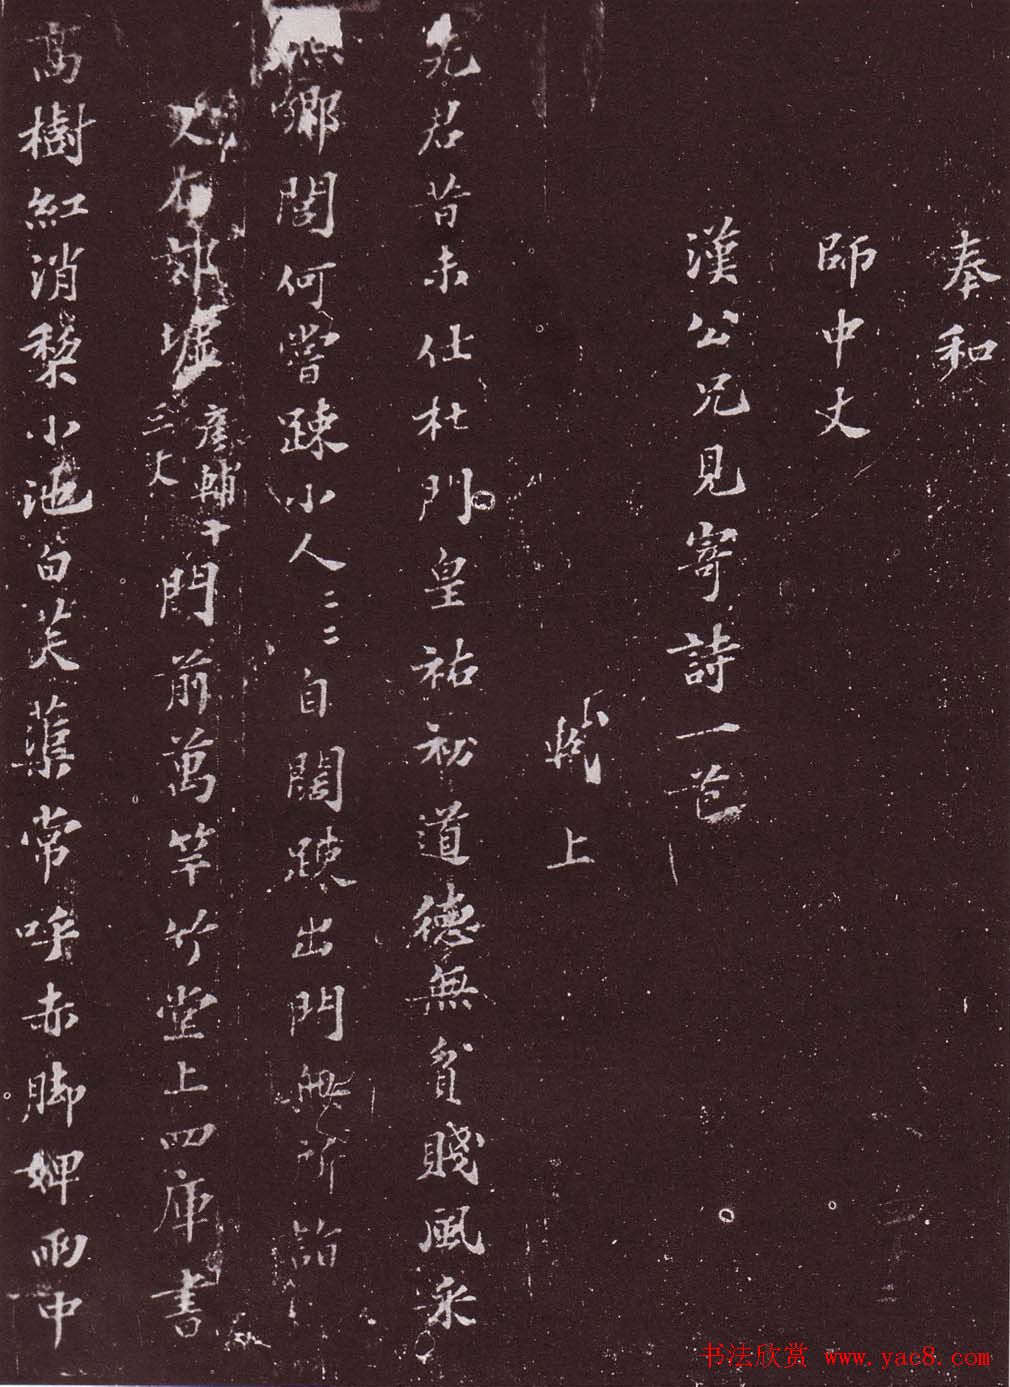 奉和
師中丈
漢公兄見寄詩一首
軾上
先君昔未仕杜門皇祐初道德無貧賤風采
照鄉閭何嘗踈小人〻〻自闊踈出門無所詣
史在郊墟彥輔十三丈門前萬竿竹堂上四庫書
高樹紅消梨小池白芙蕖常呼赤脚婢雨中
书法欣赏 www.yac8.com